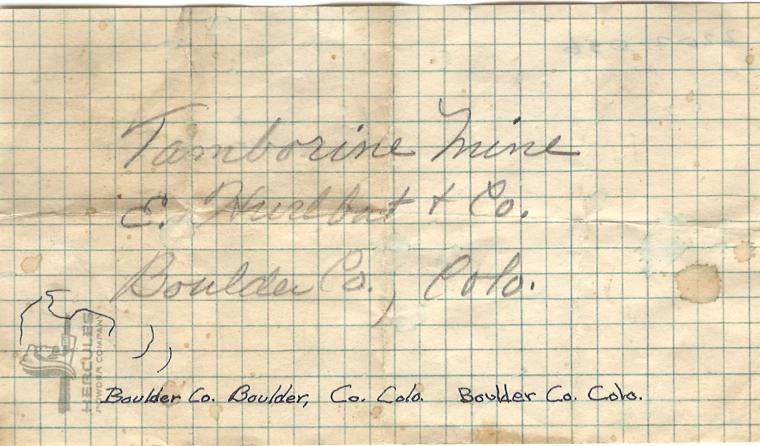 Tamborine Mine
E. Hurlbut & Co.
Boulder Co., Colo.
HERCULES
POWDER COMPANY
Boulder Co. Boulder, Co. Colo. Boulder Co. Colo.